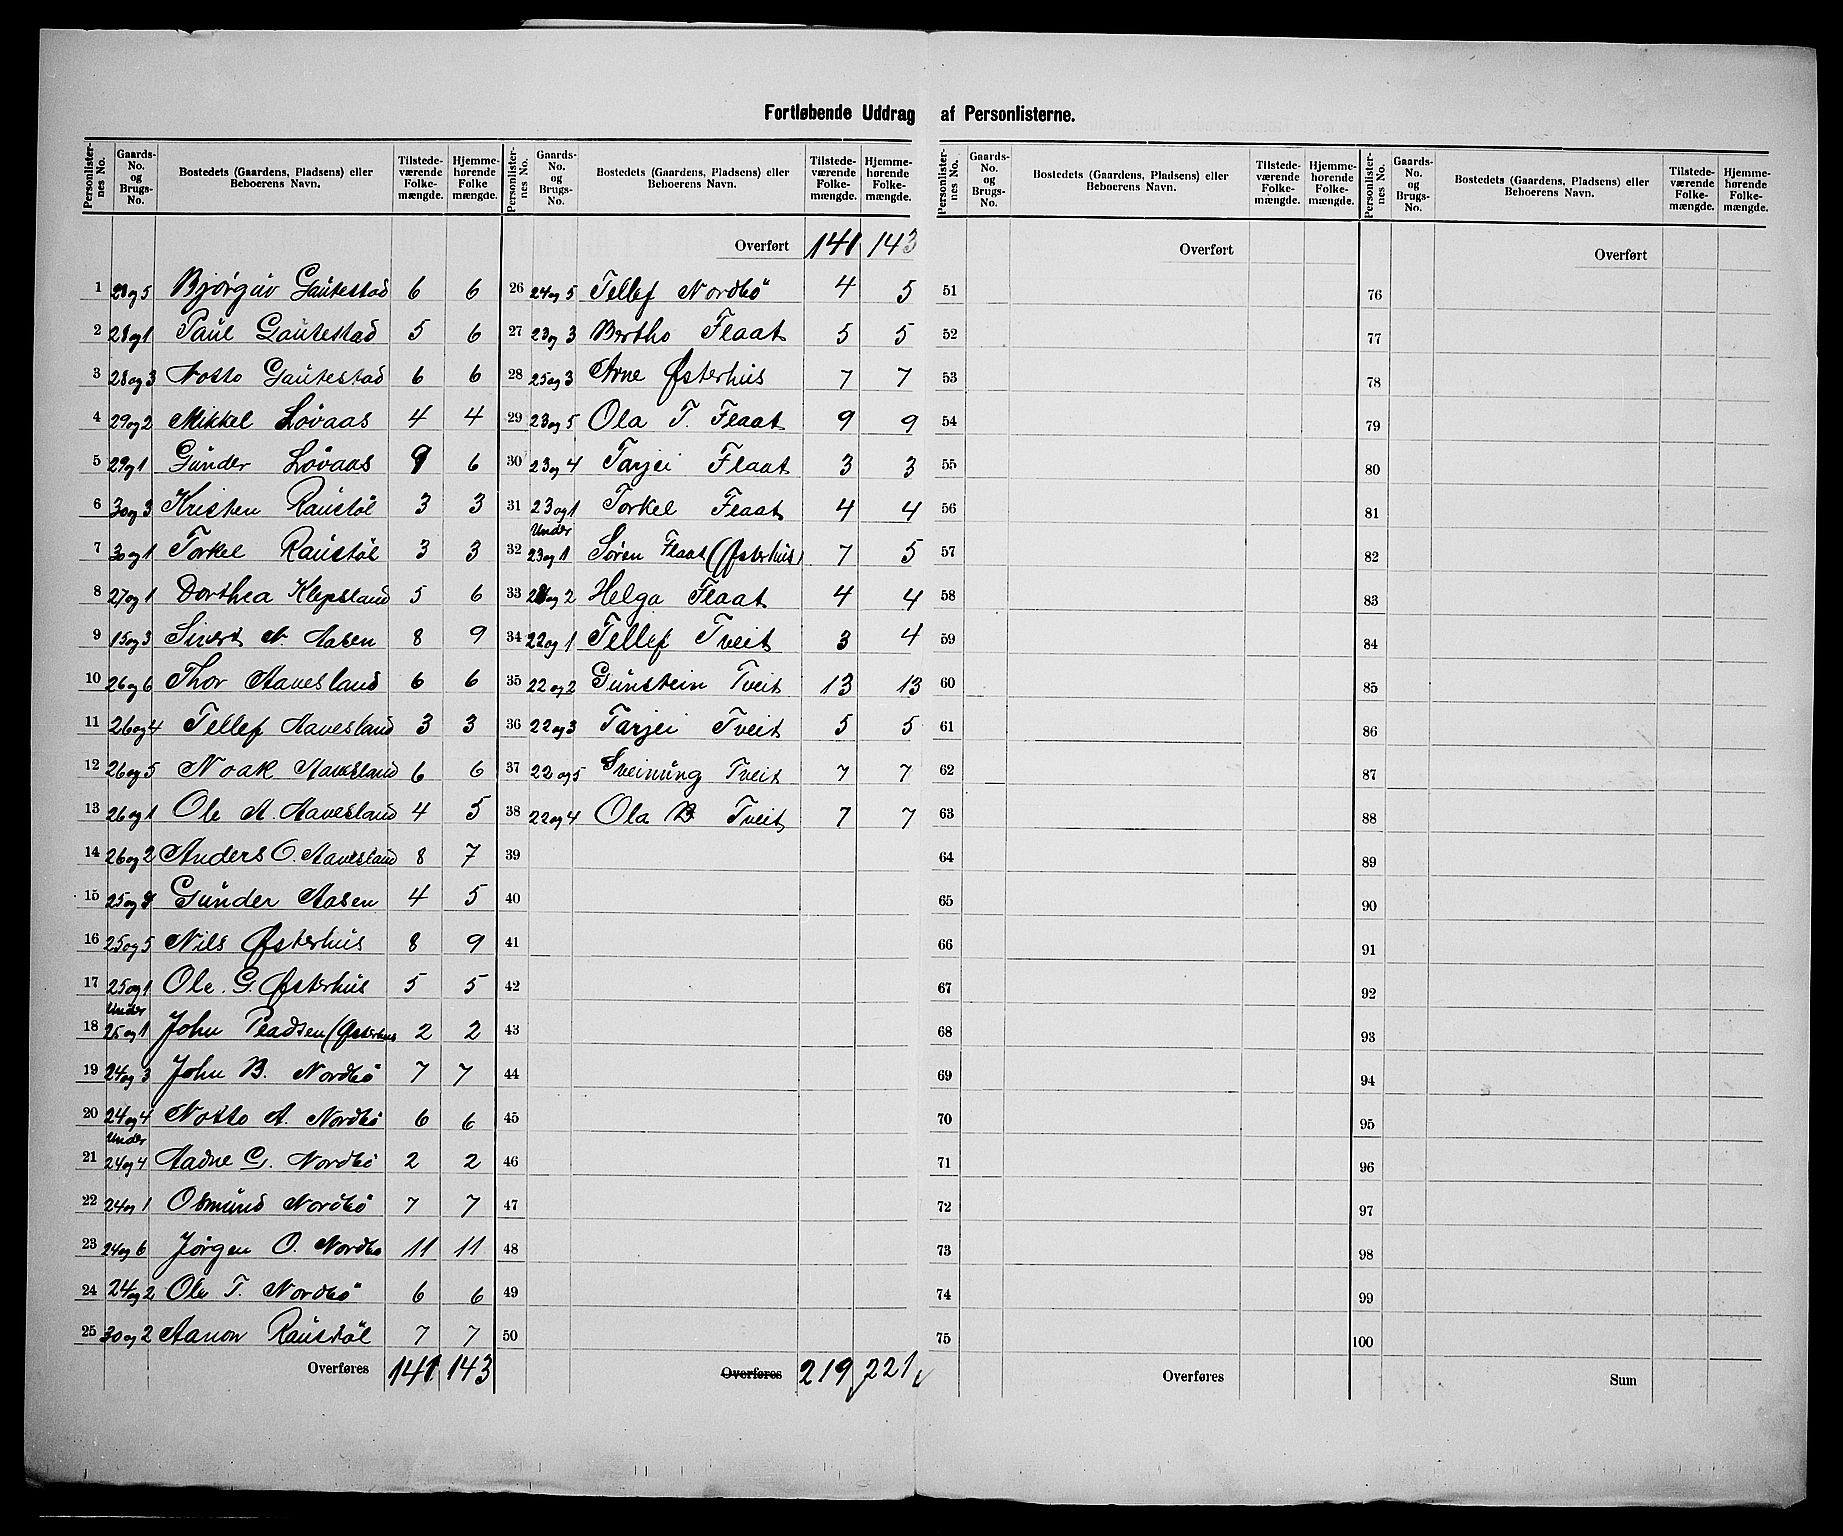 Fortløbende Uddrag af Personlisterne.
Personlisternes No. Gaards-No. og Brugs-No. Bostedets (Gaardens, Pladsens) eller Beboerens Navn. Tilstedeværende Folkemængde. Hjemmehørende Folkemængde.
1 28 og 5 Bjørguv Gautestad 6 6
2 28 og 1 Paul Gautestad 5 6
3 28 og 3 Notto Gautestad 6 6
4 29 og 2 Mikkel Løvaas 4 4
5 29 og 1 Gunder Løvaas 9 6
6 30 og 3 Kristen Raustøl 3 3
7 30 og 1 Torkel Raustøl 3 3
8 27 og 1 Dorthea Klepsland 5 6
9 15 og 3 Sivert N. Aasen 8 9
10 26 og 6 Thor Aavesland 6 6
11 26 og 4 Tellef Aavesland 3 3
12 26 og 5 Noak Aavesland 6 6
13 26 og 1 Ole A. Aavesland 4 5
14 26 og 2 Anders O. Aavesland 8 7
15 25 og Gunder Aasen 4 5
16 25 og 5 Nils Østerhus 8 9
17 25 og 1 Ole G. Østerhus 5 5
Under
18 25 og 1 John Pladsen (Østerhus 2 2
19 24 og 3 John B. Nordbö 7 7
20 24 og 4 Notto A. Nordbö 6 6
Under
21 24 og 4 Aadne G. Nordbö 2 2
22 24 og 1 Osmund Nordbö 7 7
23 24 og 6 Jørgen O. Nordbo 11 11
24 24 og 2 Ole T. Nordbö 6 6
25 30 og 2 Aanon Raustøl 7 7
Overføres 141 143
Personlisternes No. Gaards-No. og Brugs-No. Bostedets (Gaardens, Pladsens) eller Beboerens Navn. Tilstedeværende Folkemængde. Hjemmehørende Folkemængde.
Overført 141 143
26 24 og 5 Tellef Nordbö 4 5
27 23 og 3 Bertho Flaat 5 5
28 25 og 3 Arne Østerhus 7 7
29 23 og 5 Ola T. Flaat 9 9
30 23 og 4 Tarjei Flaat 3 3
31 23 og 1 Torkel Flaat 4 4
Under
32 23 og 1 Søren Flaat (Østerhus) 7 5
33 og 2 Helga Flaat 4 4
34 22 og 1 Tellef Tveit 3 4
35 22 og 2 Gunstein Tveit 13 13
36 22 og 3 Tarjei Tveit 5 5
37 22 og 5 Sveinung Tveit 7 7
38 22 og 4 Ola B Tveit 7 7
39
40
41
42
43
44
45
46
47
48
49
50
Overføres 219 221
Personlisternes No. Gaards-No. og Brugs-No. Bostedets (Gaardens, Pladsens) eller Beboerens Navn. Tilstedeværende Folkemængde. Hjemmehørende Folkemængde.
Overført
51
52
53
54
55
56
57
58
59
60
61
62
63
64
65
66
67
68
69
70
71
72
73
74
75
Overføres
Personlisternes No. Gaards-No. og Brugs-No. Bostedets (Gaardens, Pladsens) eller Beboerens Navn. Tilstedeværende Folkemængde. Hjemmehørende Folkemængde.
Overført
76
77
78
79
80
81
82
83
84
85
86
87
88
89
90
91
92
93
94
95
96
97
98
99
100
Sum